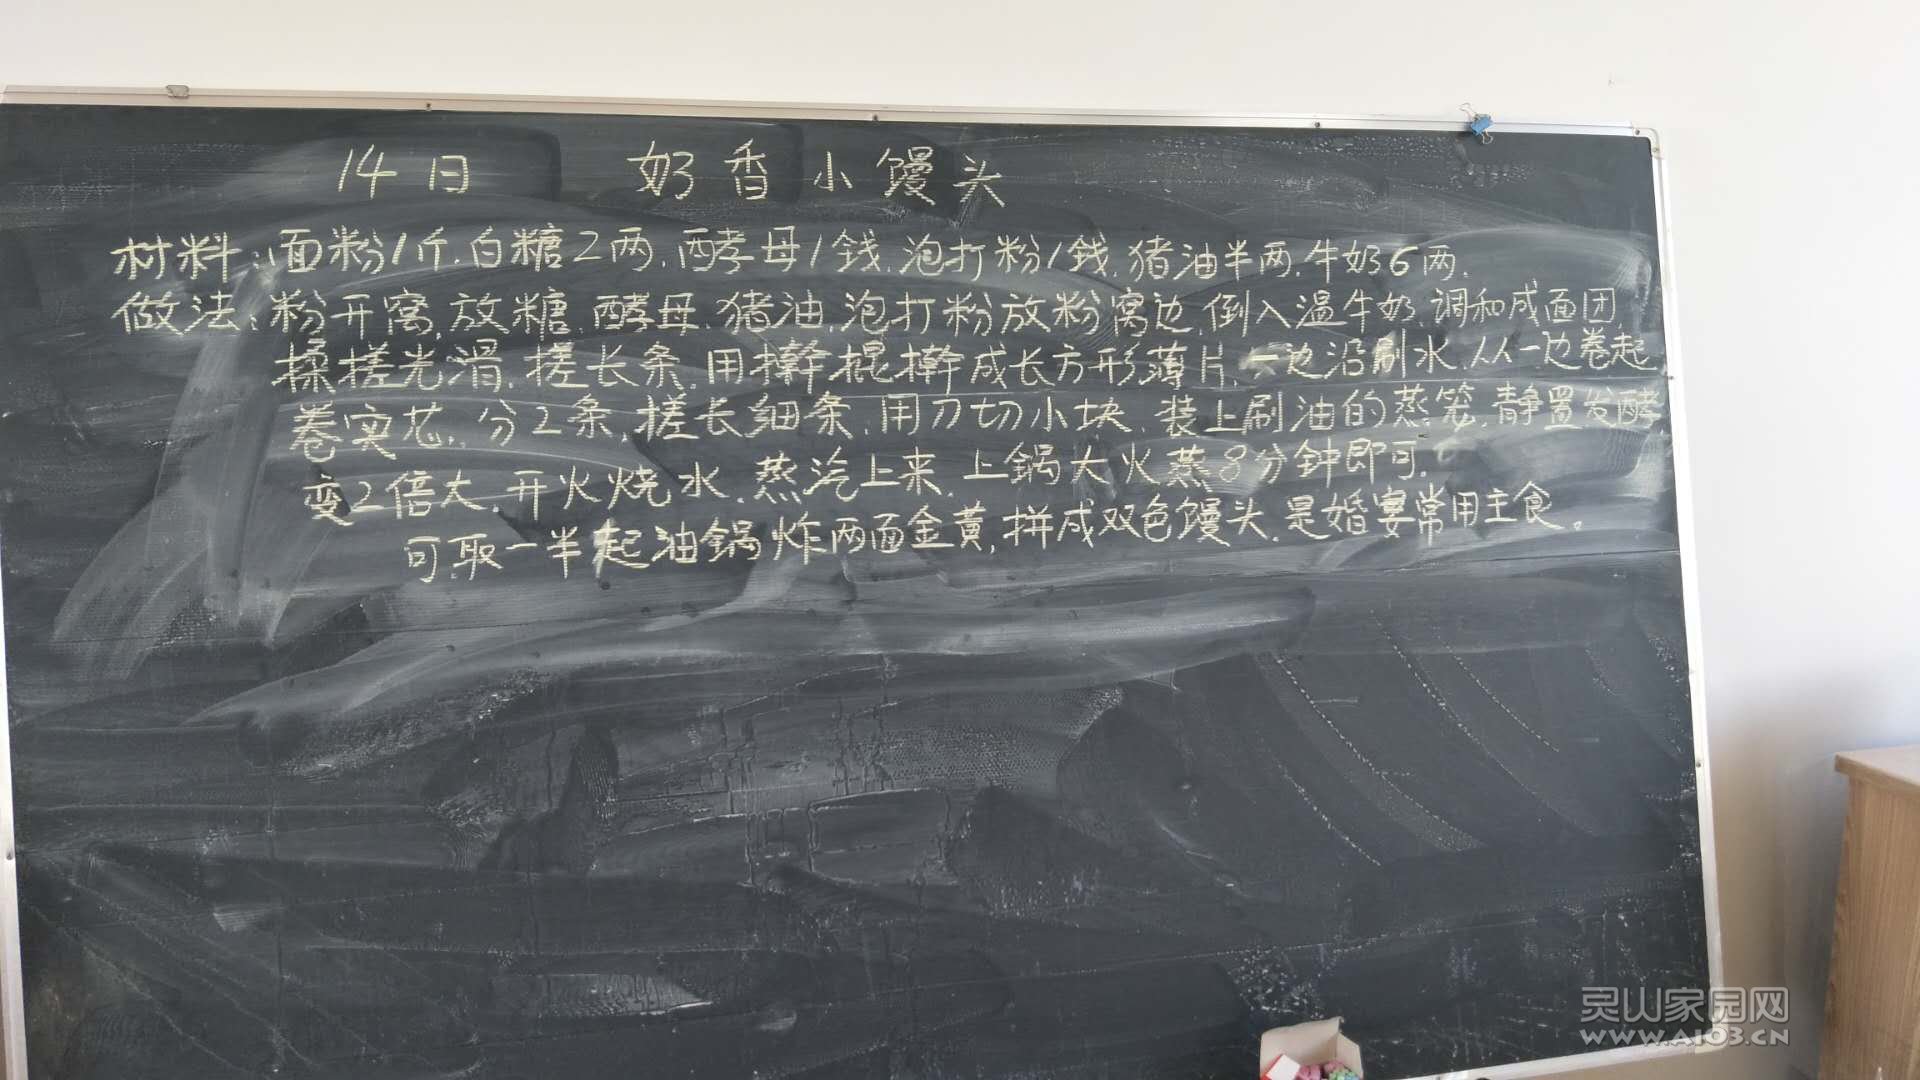 14日 奶香小馒头
材料:面粉1斤.白糖2两.酵母1钱.泡打粉1钱.猪油半两.牛奶6两.
做法:粉开窝,放糖.酵母.猪油.泡打粉放粉窝边.倒入温牛奶.调和成面团.
揉搓光滑.搓长条.用擀棍擀成长方形薄片.一边沿刷水.从一边卷起
卷实芯.分2条.搓长细条.用刀切小块.装上刷油的蒸笼.静置发酵
变2倍大.开火烧水.蒸汽上来.上锅大火蒸8分钟即可.
可取一半起油锅炸两面金黄,拼成双色馒头.是婚宴常用主食。
灵山家园网
WWW.AI03.CN